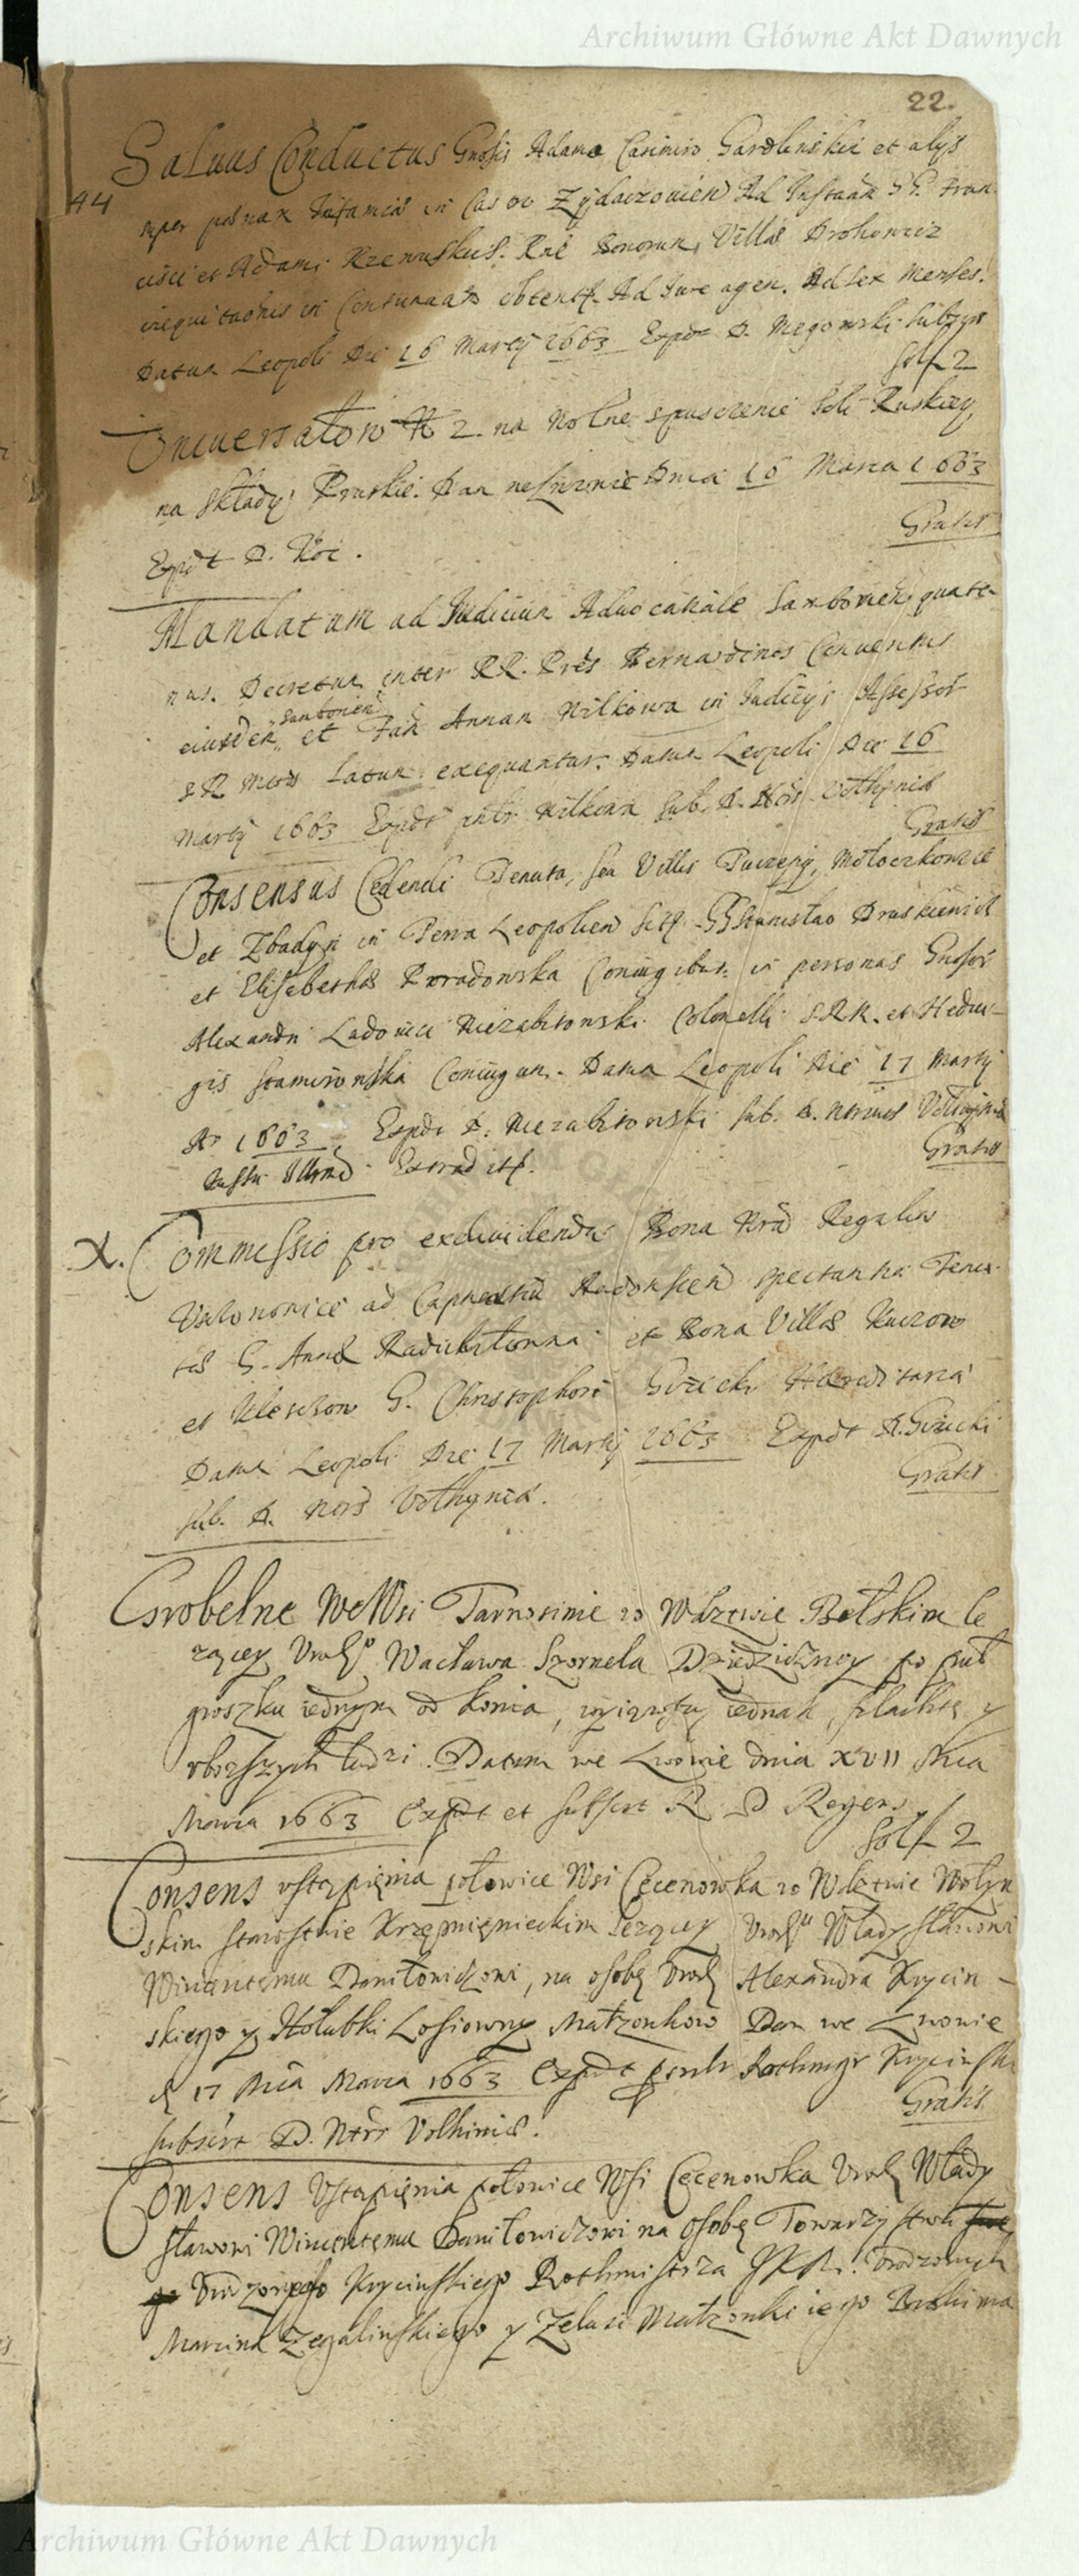 Archiwum Główne Akt Dawnych
22.
Saluus Conductus Gnosis Adamo Casimiro Gardlinskii et alys
44
super paenax Infamiae in Cas oo Zydaczouien Ad Instaan GG. Fran
cisci et Adami Rzewuskich. Rne Bonorum Villae Brohowicz
inequitaonis in Contumaa obtent. Ad Jure agen. Ad sex Menses.
Datum Leopoli Die 16 Martij 1663 Expdt D. Megowski subscr
sol 2
Uniuersałow N 2. na Wolne spusczenie Soli Ruskiey
na Składy Pruskie. Dan Dnia 16 Marca 1663
Gratis
Expdt D. Koc.
Mandatum ad Judicium Aduocatiale Samborien quate-
nus. Decretum inter RR. Pres Bernardinos Conuentus
eiusdem Samborien et Annam Wilkowa in Judicijs Assessor
S R Mttis Latum exequantur. Datum Leopoli Die 16
Martij 1663 Expdt Wilkcan Sub. D. Nris Volhyniae
Gratis
Consensus Cedendi Tenuta, seu Villis Tuczepy, Mołoczkowice
et Zbadyn in Terra Leopolien sitt. GG Stanislao Druskienick
et Elisabetha Poradowska Coniugibus in personas Gnosor
Alexandri Ladouici Niezabitowski Colonelli S.R.M. et Hedui-
gis Stamirowska Coniugum. Datum Leopoli Die 17 Martij
Ao 1663. Expdt D. Niezabitowski sub. D. Notarius Volhyniae
Gratis
Jussu Illmi Extradit.
X. Commissio pro exdiuidendis Bona Nra Regalia
ad Capneatum spectantia Tenu
tae G. Annae et Bona Villas Kuczow
et Kleszczow G. Christophori Gizicki Haereditaria
Datum Leopoli Die 17 Martij 1663 Expdt D. Gizicki
Gratis
sub. D. Noris Volhyniae.
Grobelne We Wsi Tarnoszinie w Wdztwie Bełskim le
zącey Urodzo Wacława Szornela Dziedziczney po puł
groszku iednym od konia, wyiąwszy iednak, szlachtę y
vboszszych ludzi. Datum we Lwowie dnia XVII Mca
Marca 1663 Expdt et subscr R. D Regens
sol 2
Consens vstąpięnia połowice Wsi Cęcenowka w Wdztwie Wołyn
skim starostwie Krzęmięnieckim lezącey Urodzu Władysławowi
Wincentemu Daniłowiczowi, na osobę Urodz Alexandra Krycin-
skiego y Hołubki Losiowny Małzonkow Dan we Lwowie
d 17 Mca Marca 1663 Expdt penlr Rothmgr Krycinski
Gratis
subscr D. Ntrs Volhiniae.
Consens Vstąpięnia połowice Wsi Cęcenowka Urodz Włady
sławowi Wincentemu Daniłowiczowi na osobę Towarzystwa
Urodzonego Krycinskiego Rothmistrza JKM. Urodzonych
Marcina Zegalinskiego y Małzonki iego
Archiwum Główne Akt Dawnych